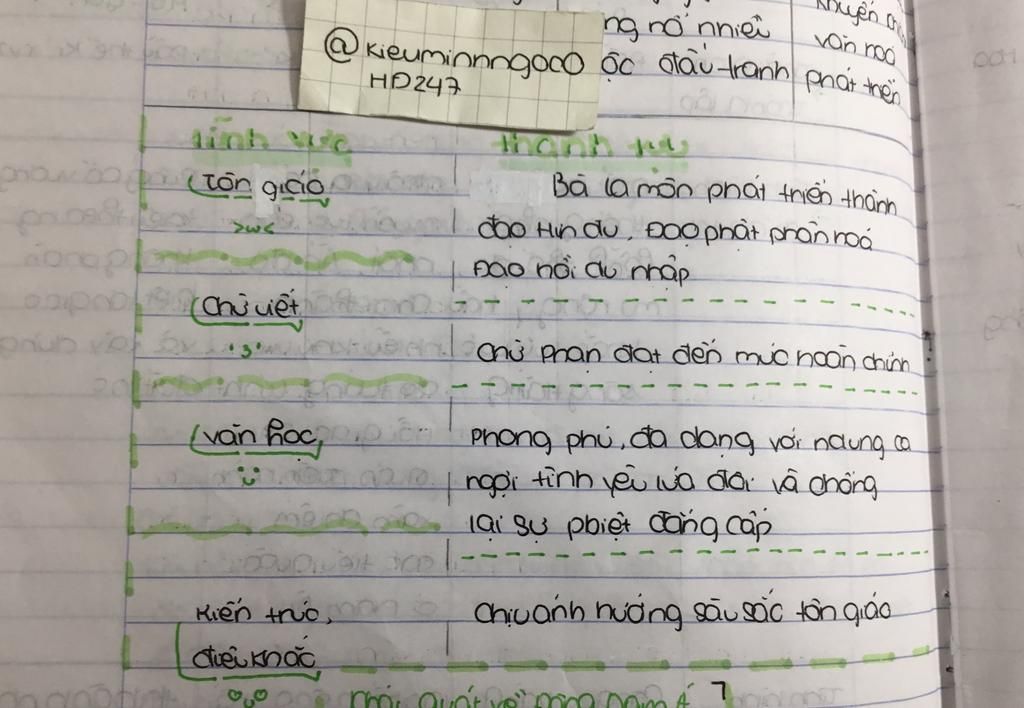 khuyến
@kieuminnngoc0
HD247
ng nổ nhiều
văn hoá
ộc đấu tranh
phát triển
lĩnh vực
thành tựu
Tôn giáo
Bà la môn phát triển thành
>w<
đạo Hin đu, Đạo phật phân hoá
Đạo hồi du nhập
Chữ viết
'3'
chữ phạn đạt đến mức hoàn chỉnh
văn học
phong phú, đa dạng với ndung ca
ngợi tình yêu lứa đôi và chống
lại sự pbiệt đẳng cấp
kiến trúc,
chịu ảnh hưởng sâu sắc tôn giáo
điêu khắc
Khái quát về Đông Nam Á
7